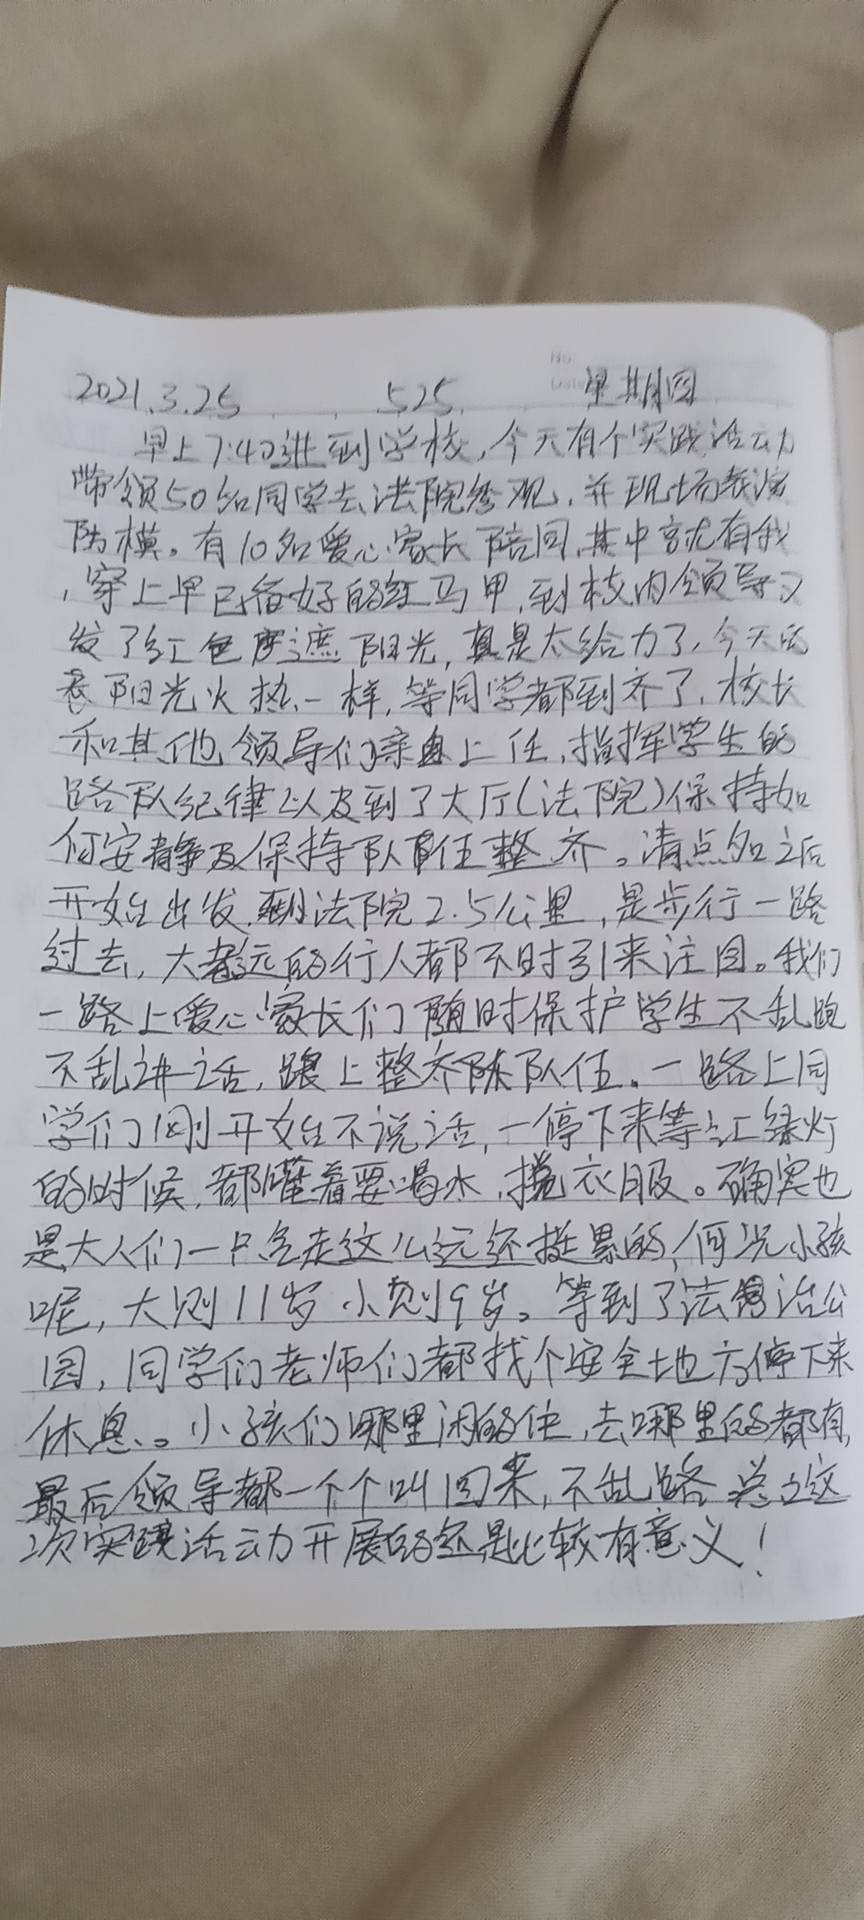 No
Date
2021.3.25 525 星期四
早上7:40进到学校,今天有个实践活动
带领50名同学去法院参观,并现场表演
防模。有10名爱心家长陪同,其中就有我
,穿上早已备好的红马甲,到校内领导又
发了红色 遮阳光,真是太给力了,今天的
阳光火热一样,等同学都到齐了,校长
和其他领导们亲自上任,指挥学生的
路队纪律以及到了大厅(法院)保持如
何安静及保持队伍整齐。清点名之后
开始出发,到法院2.5公里,是步行一路
过去,大老远的行人都不时引来注目。我们
一路上爱心家长们随时保护学生不乱跑
不乱讲话,跟上整齐队伍。一路上同
学们刚开始不说话,一停下来等红绿灯
的时候,都嚷着要喝水,搅衣服。确实也
是大人们一口气走这么远还挺累的,何况小孩
呢,大则11岁小则9岁。等到了法治公
园,同学们老师们都找个安全地方停下来
休息、。小孩们哪里闲的住,去哪里的都有,
最后领导都一个个叫回来,不乱路 总之这
次实践活动开展的还是比较有意义!